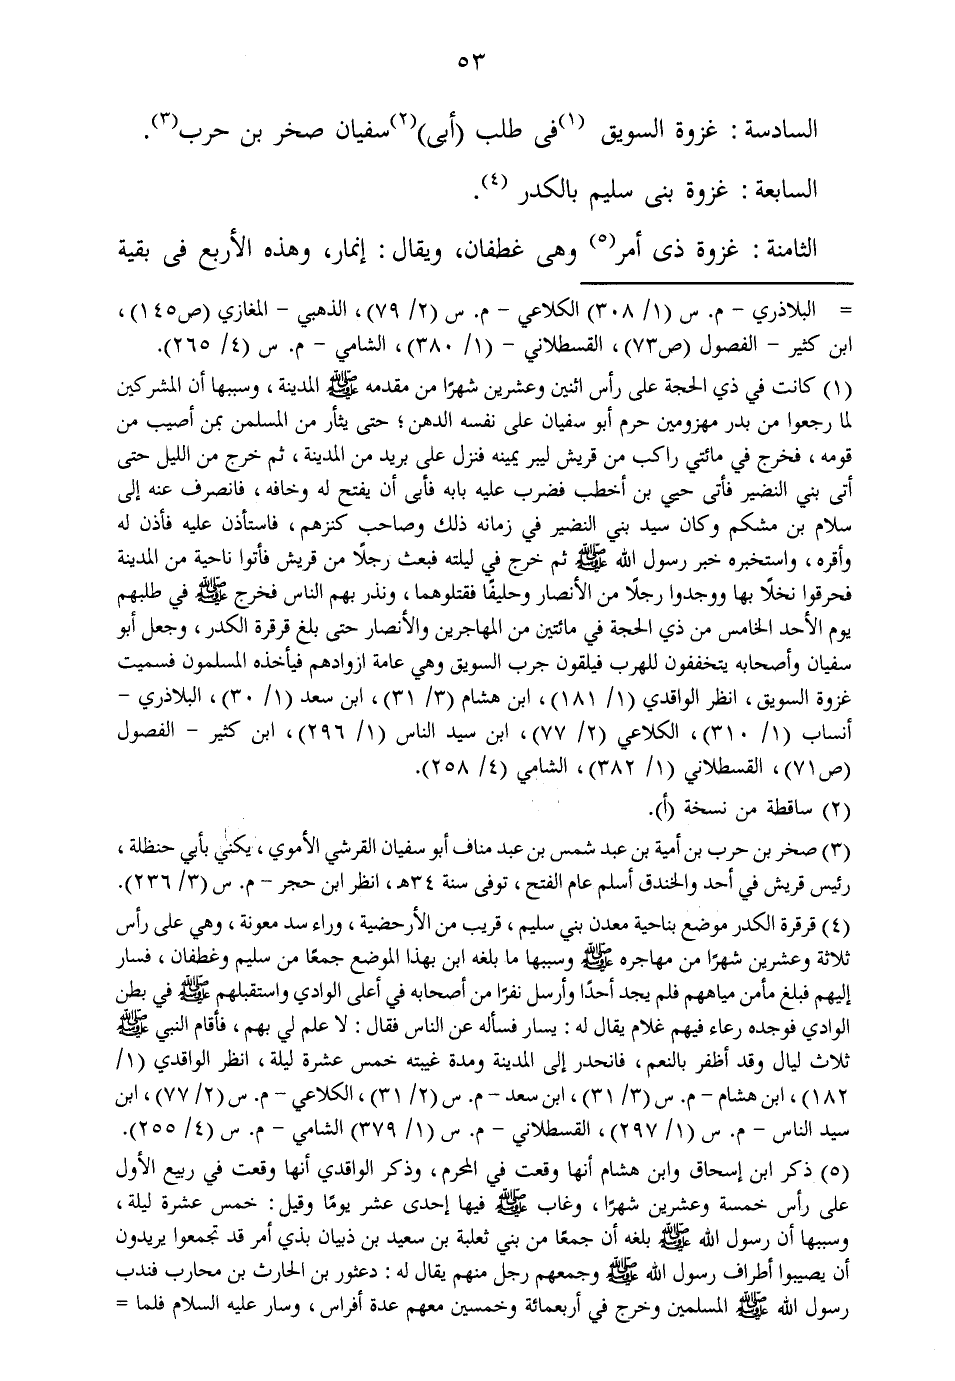 ٥٣
السادسة : غزوة السويق (١)فى طلب (أبى)(٢)سفيان صخر بن حرب(٣).
السابعة : غزوة بنى سليم بالكدر (٤).
الثامنة : غزوة ذى أمر(٥) وهى غطفان، ويقال : إنمار، وهذه الأربع فى بقية
= البلاذري – م. س (١/ ٣٠٨) الكلاعي – م. س (٢/ ٧٩)، الذهبي – المغازي (ص١٤٥)،
ابن كثير – الفصول (ص٧٣)، القسطلاني – (١/ ٣٨٠)، الشامي – م. س (٤/ ٢٦٥).
(١) كانت في ذي الحجة على رأس اثنين وعشرين شهرًا من مقدمه ﷺ المدينة، وسببها أن المشركين
لما رجعوا من بدر مهزومين حرم أبو سفيان على نفسه الدهن؛ حتى يثأر من المسلمن بمن أصيب من
قومه، فخرج في مائتي راكب من قريش ليبر يمينه فنزل على بريد من المدينة، ثم خرج من الليل حتى
أتى بني النضير فأتى حيي بن أخطب فضرب عليه بابه فأبى أن يفتح له وخافه، فانصرف عنه إلى
سلام بن مشكم وكان سيد بني النضير في زمانه ذلك وصاحب كنزهم، فاستأذن عليه فأذن له
وأقره، واستخبره خبر رسول الله ﷺ ثم خرج في ليلته فبعث رجلًا من قريش فأتوا ناحية من المدينة
فحرقوا نخلًا بها ووجدوا رجلًا من الأنصار وحليفًا فقتلوهما، ونذر بهم الناس فخرج ﷺ في طلبهم
يوم الأحد الخامس من ذي الحجة في مائتين من المهاجرين والأنصار حتى بلغ قرقرة الكدر، وجعل أبو
سفيان وأصحابه يتخففون للهرب فيلقون جرب السويق وهي عامة ازوادهم فيأخذه المسلمون فسميت
غزوة السويق، انظر الواقدي (١/ ١٨١)، ابن هشام (٣/ ٣١)، ابن سعد (١/ ٣٠)، البلاذري –
أنساب (١/ ٣١٠)، الكلاعي (٢/ ٧٧)، ابن سيد الناس (١/ ٢٩٦)، ابن كثير – الفصول
(ص٧١)، القسطلاني (١/ ٣٨٢)، الشامي (٤/ ٢٥٨).
(٢) ساقطة من نسخة (أ).
(٣) صخر بن حرب بن أمية بن عبد شمس بن عبد مناف أبو سفيان القرشي الأموي، يكنى بأبي حنظلة،
رئيس قريش في أحد والخندق أسلم عام الفتح، توفى سنة ٣٤هـ، انظر ابن حجر – م. س (٣/ ٢٣٦).
(٤) قرقرة الكدر موضع بناحية معدن بني سليم، قريب من الأرحضية، وراء سد معونة، وهي على رأس
ثلاثة وعشرين شهرًا من مهاجره ﷺ وسببها ما بلغه ابن بهذا الموضع جمعًا من سليم وغطفان، فسار
إليهم فبلغ مأمن مياههم فلم يجد أحدًا وأرسل نفرًا من أصحابه في أعلى الوادي واستقبلهم ﷺ في بطن
الوادي فوجده رعاء فيهم غلام يقال له : يسار فسأله عن الناس فقال : لا علم لي بهم، فأقام النبي ﷺ
ثلاث ليال وقد أظفر بالنعم، فانحدر إلى المدينة ومدة غيبته خمس عشرة ليلة، انظر الواقدي (١/
١٨٢)، ابن هشام – م. س (٣/ ٣١)، ابن سعد – م. س (٢/ ٣١)، الكلاعي – م. س (٢/ ٧٧)، ابن
سيد الناس – م. س (١/ ٢٩٧)، القسطلاني – م. س (١/ ٣٧٩) الشامي – م. س (٤/ ٢٥٥).
(٥) ذكر ابن إسحاق وابن هشام أنها وقعت في المحرم، وذكر الواقدي أنها وقعت في ربيع الأول
على رأس خمسة وعشرين شهرًا، وغاب ﷺ فيها إحدى عشر يومًا وقيل : خمس عشرة ليلة،
وسببها أن رسول الله ﷺ بلغه أن جمعًا من بني ثعلبة بن سعيد بن ذبيان بذي أمر قد تجمعوا يريدون
أن يصيبوا أطراف رسول الله ﷺ وجمعهم رجل منهم يقال له : دعثور بن الحارث بن محارب فندب
رسول الله ﷺ المسلمين وخرج في أربعمائة وخمسين معهم عدة أفراس، وسار عليه السلام فلما =